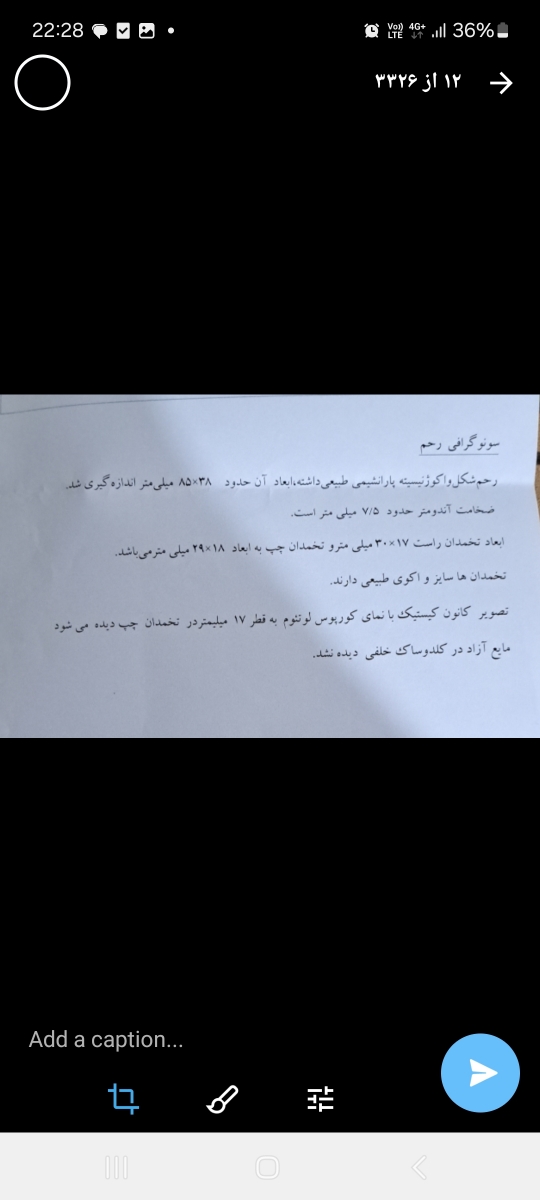 22:28 Vo)) LTE 4G+ 36%
۱۲ از ۳۳۲۶
سونوگرافی رحم
رحم‌شکل‌واکوژنیسیته پارانشیمی طبیعی‌داشته،ابعاد آن حدود ۸۵×۳۸ میلی‌متر اندازه‌گیری شد.
ضخامت آندومتر حدود ۷/۵ میلی متر است.
ابعاد تخمدان راست ۳۰×۱۷ میلی مترو تخمدان چپ به ابعاد ۲۹×۱۸ میلی مترمی‌باشد.
تخمدان ها سایز و اکوی طبیعی دارند.
تصویر کانون کیستیک با نمای کورپوس لوتئوم به قطر ۱۷ میلیمتردر تخمدان چپ دیده می شود
مایع آزاد در کلدوساک خلفی دیده نشد.
Add a caption...